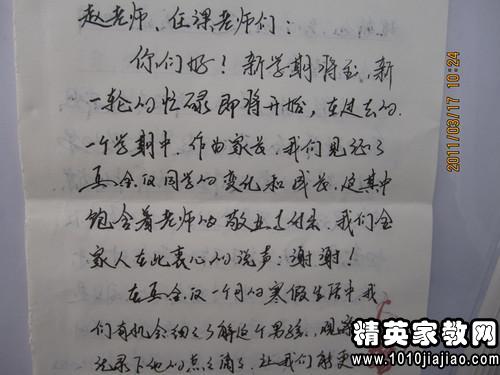 赵老师、任课老师们：
你们好！新学期将至，新
一轮的忙碌即将开始，在过去的
一个学期中，作为家长，我们见证了
同学的变化和成长，这其中
饱含着老师的敬业与付出，我们全
家人在此衷心的说声：谢谢！
在 一个月的寒假生活中，我
们有机会细细了解这个男孩，观察
记录下他的点点滴滴，让我们能更
2011/03/17 10:24
精英家教网
www.1010jiajiao.com